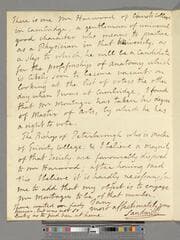 There is one Mr Harwood of Emanuel College
in Cambridge, a gentleman of very
good character who means to practise
as a Physician in that University, as
a step to which he will be a Candidate
for the professorship of Anatomy which
is likely soon to become vacant. on
looking at the List of Votes the other
day when I was at Cambridge, I found
that Mr Montagu has taken his degree
of Master of Arts, by which he has
a right to vote.
The Bishop of Peterborough who is Master
of Trinity College & I believe a majority
of that Society are favourably disposed
to Mr Harwood after having said
this I believe it is hardly necessary for
me to add that my object is to engage
Mr Montagu to be of that number.
I am
most affectionately yours
Sandwich